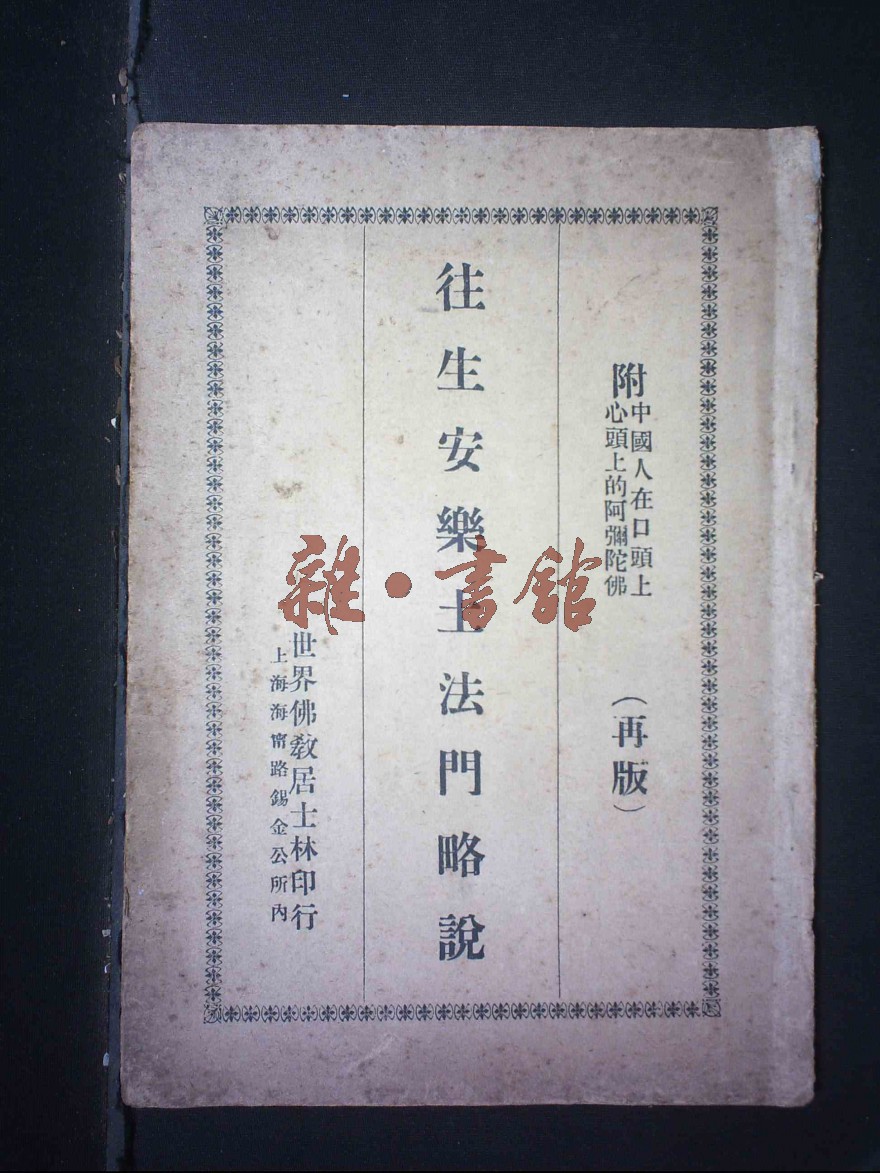 附中國人在口頭上
心頭上的阿彌陀佛
（再版）
往生安樂土法門略說
世界佛教居士林印行
上海海甯路錫金公所內
雜·書館